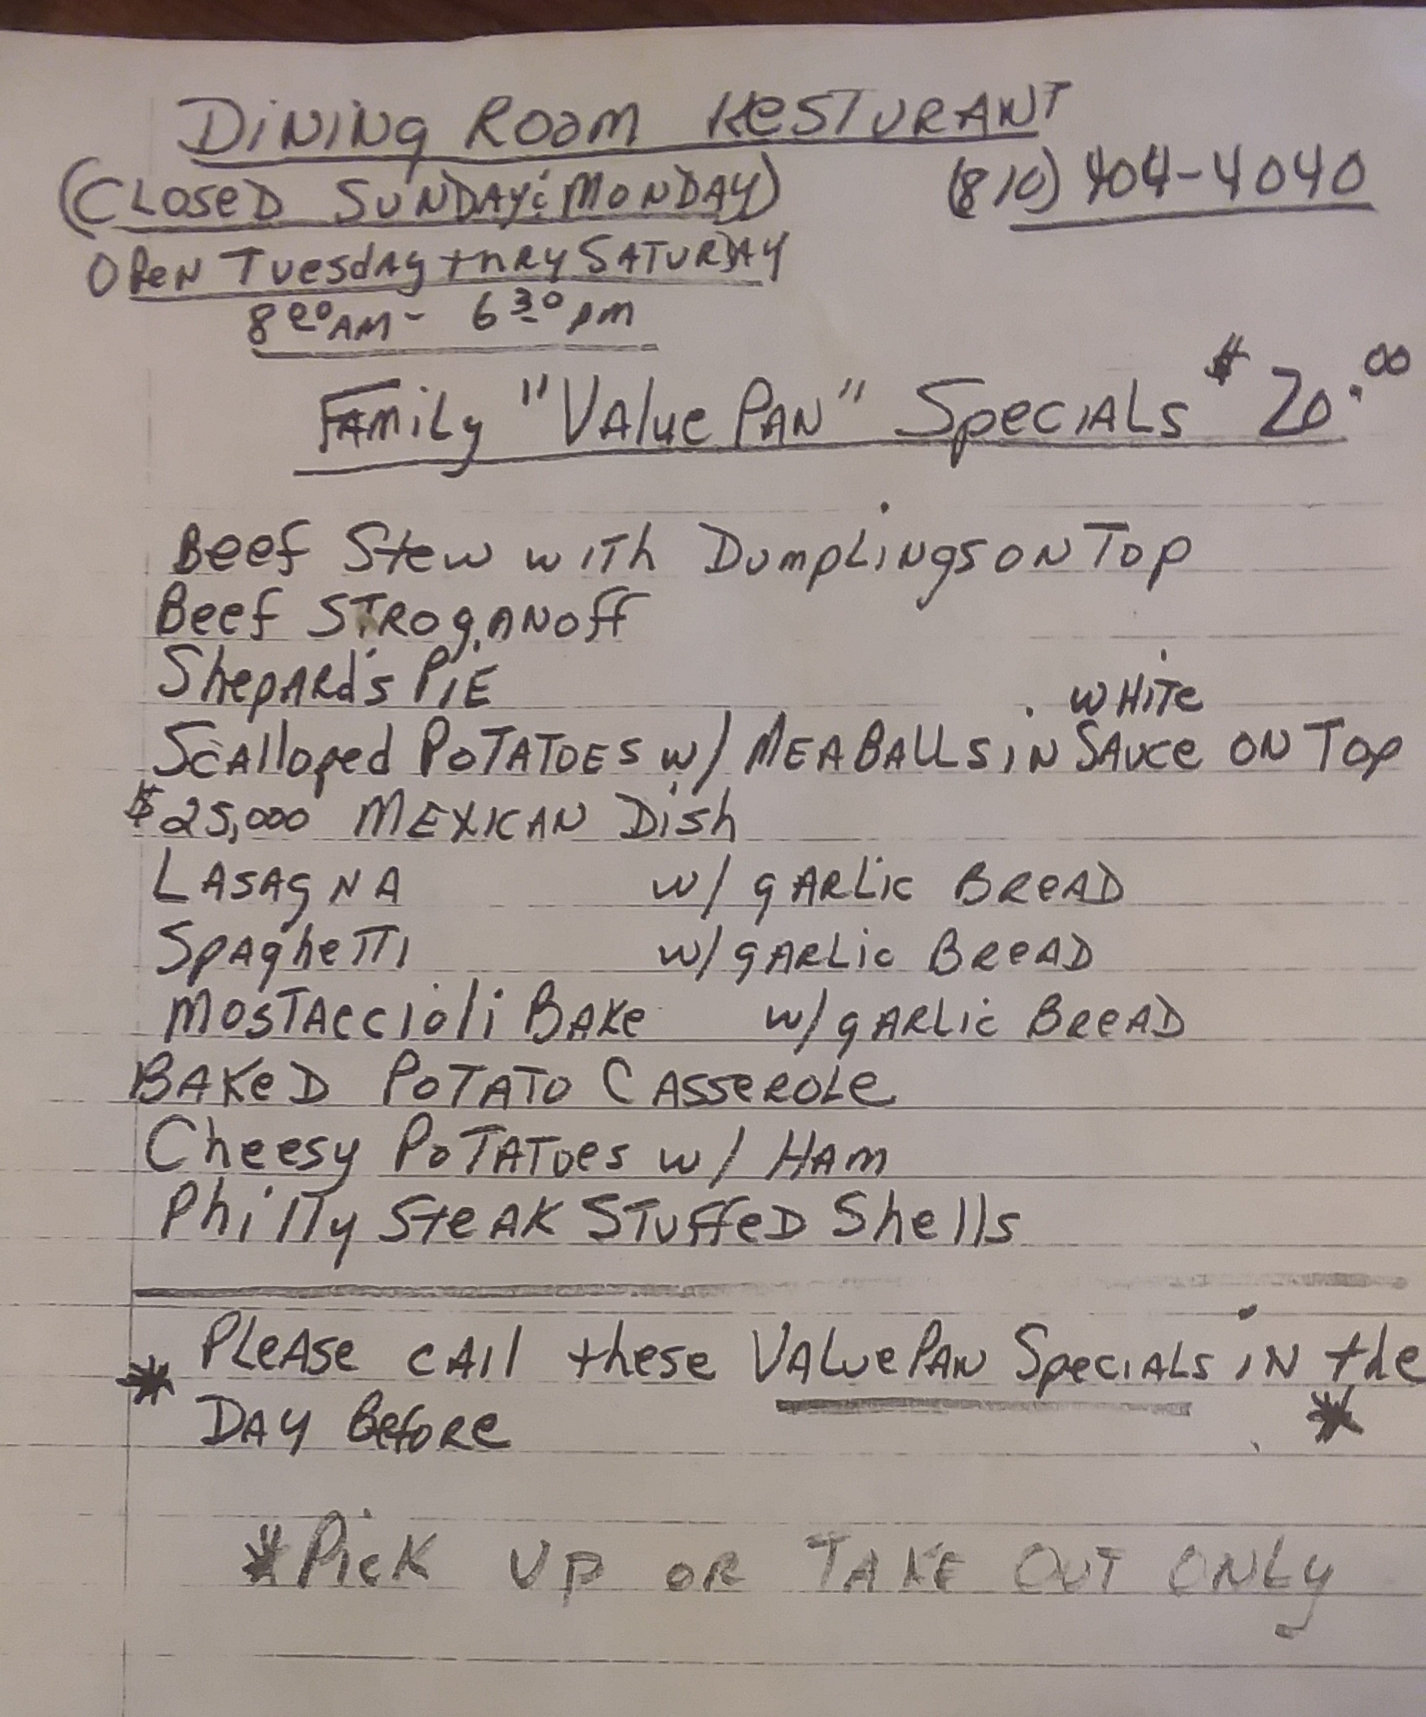 Dining Room Resturant
(Closed Sunday & Monday) (810) 404-4040
Open Tuesday thry Saturday
8 00 AM - 6 30 pm
Family "Value Pan" Specials $20.00
Beef Stew with Dumplings on Top
Beef Stroganoff
Shepard's Pie
Scalloped Potatoes w/ Meaballs in White Sauce on Top
$25,000 Mexican Dish
Lasagna w/ garlic Bread
Spaghetti w/ garlic Bread
Mostaccioli Bake w/ garlic Bread
Baked Potato Casserole
Cheesy Potatoes w/ Ham
Philly Steak Stuffed Shells
* Please call these Value Pan Specials in the
Day Before *
*Pick up or Take Out Only